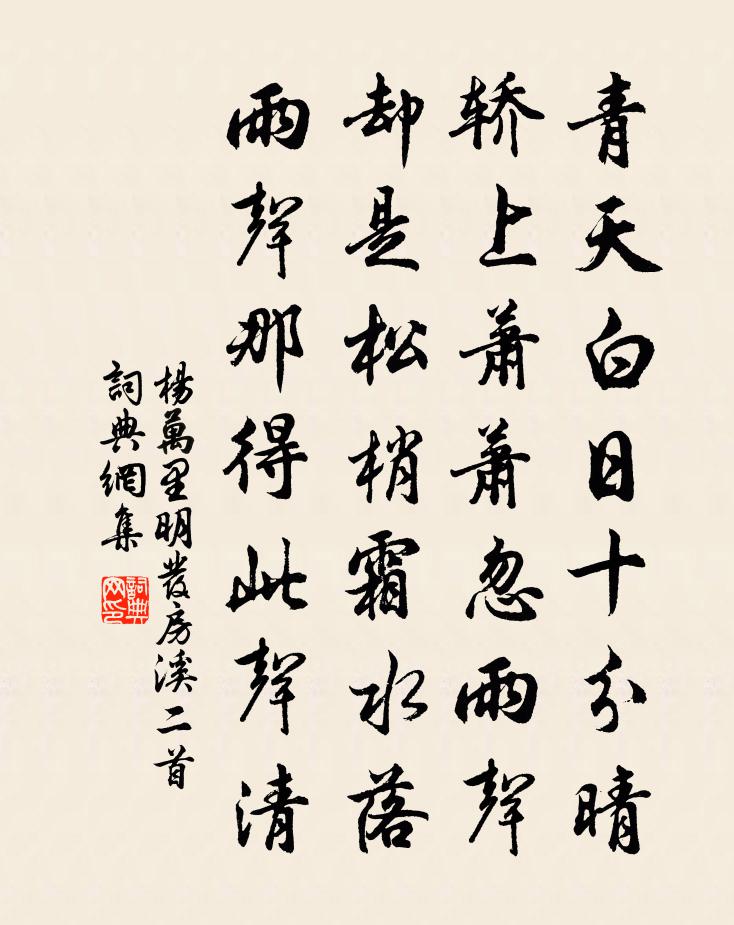 青天白日十分晴
轿上蕭蕭忽雨聲
却是松梢霜水落
雨聲那得此聲清
楊萬里明發房溪二首
詞典網集
詞典網印